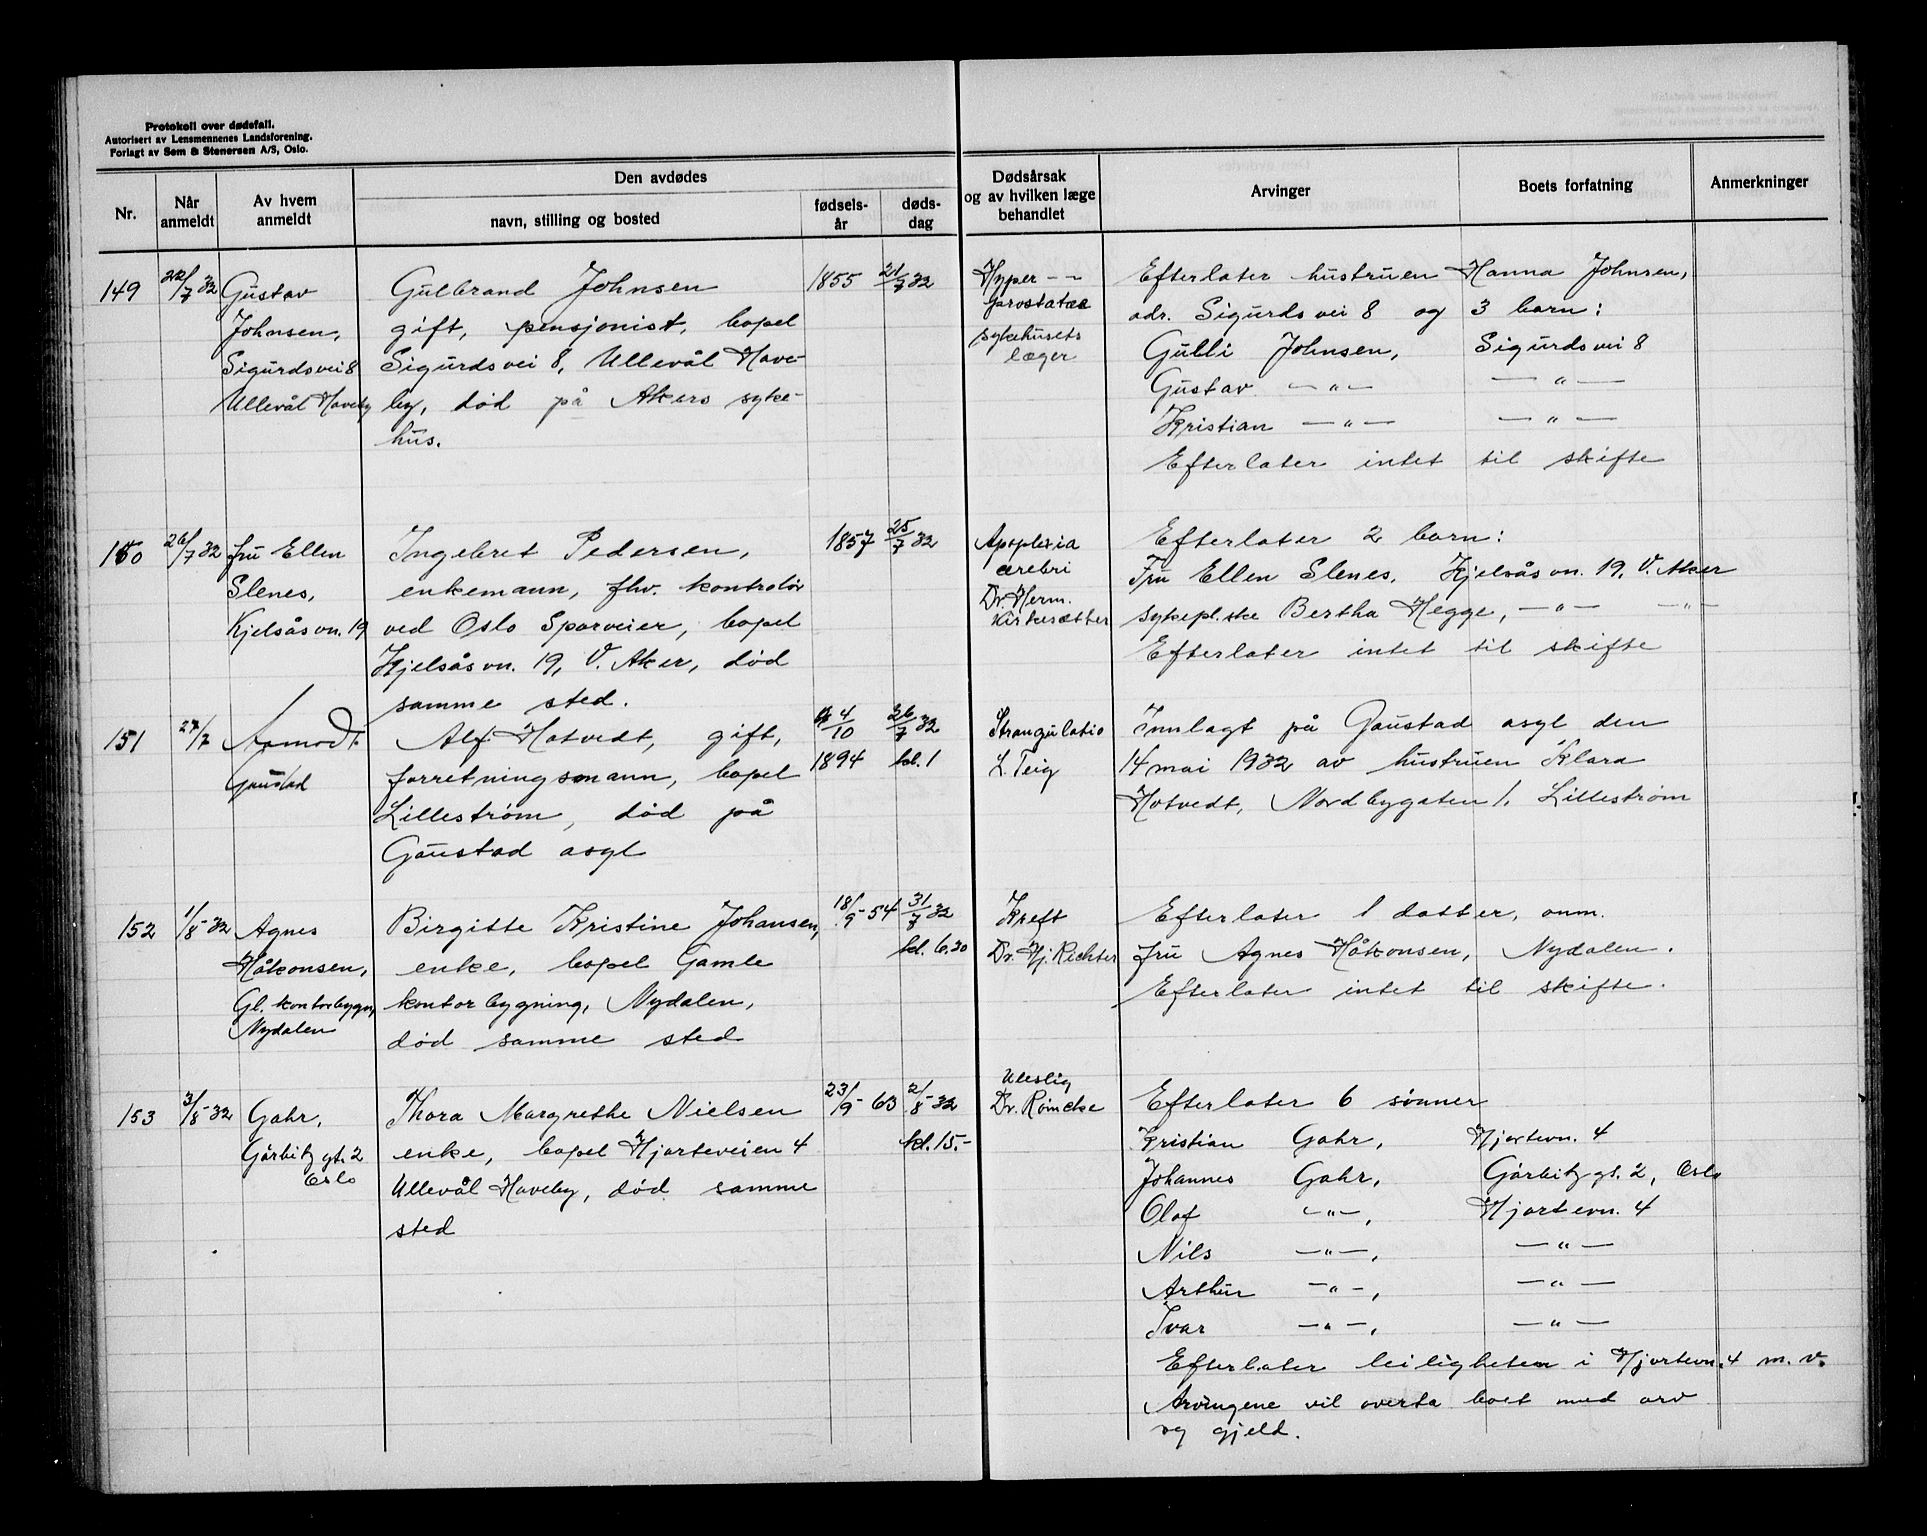 Protokoll over dødsfall.
Autorisert av Lensmennenes Landsforening.
Forlagt av Sem & Stenersen A/S, Oslo.
Nr.
Når anmeldt
Av hvem anmeldt
Den avdødes
navn, stilling og bosted
fødsels-år
døds-dag
Dødsårsak og av hvilken læge behandlet
Arvinger
Boets forfatning
Anmerkninger
149
22/7 32
Gustav
Johnsen,
Sigurdsvei 8
Ullevål Haveby
Gulbrand Johnsen
gift, pensjonist, bopel
Sigurdsvei 8, Ullevål Have-
by, død på Akers syke-
hus.
1855
21/7 32
Hyper--
prostatae
sykehusets
læger
Efterlater hustruen Hanna Johnsen,
adr. Sigurdsvei 8 og 3 barn:
Gulli Johnsen, Sigurdsvei 8
Gustav —"— —"—
Kristian —"— —"—
Efterlater intet til skifte
150
26/7 32
fru Ellen
Slenes,
Kjelsåsvn. 19
Ingebret Pedersen,
enkemann, fhv. kontrolør
ved Oslo Sporveier, bopel
Kjelsåsvn. 19, V. Aker, død
samme sted.
1857
25/7 32
Apoplexia
cerebri
Dr. Herm.
Kirkesætter
Efterlater 2 barn:
Fru Ellen Slenes, Kjelsåsvn. 19, V. Aker
sykepl.ske Bertha Hegge, —"— —"—
Efterlater intet til skifte
151
27/7
Aamodt
Gaustad
Alf Hotvedt, gift,
forretningsmann, bopel
Lillestrøm, død på
Gaustad asyl
4/10
1894
26/7 32
kl. 1
Strangulatio
L. Teig
Innlagt på Gaustad asyl den
14 mai 1932 av hustruen Klara
Hotvedt, Nordbygaten 1, Lillestrøm
152
1/8-32
Agnes
Håkonsen,
Gl. kontorbygn,
Nydalen
Birgitte Kristine Johansen,
enke, bopel Gamle
kontorbygning, Nydalen,
død samme sted
18/9-54
31/7 32
kl. 6.20
Kreft
Dr. Hj. Richter
Efterlater 1 datter, onm.
fru Agnes Håkonsen, Nydalen.
Efterlater intet til skifte.
153
3/8-32
Gahr,
Gørbitz gt. 2
Oslo
Thora Margrethe Nielsen
enke, bopel Hjorteveien 4
Ullevål Haveby, død samme
sted
23/9-63
2/8-32
kl. 15.-
Uleslig
Dr. Rømcke
Efterlater 6 sønner
Kristian Gahr, Hjortevn. 4
Johannes Gahr, Gørbitz gt. 2, Oslo
Olaf —"—, Hjortevn. 4
Nils —"—, —"—
Arthur —"—, —"—
Ivar —"—, —"—
Efterlater leiligheten i Hjortevn. 4 m. v.
Arvingene vil overta boet med arv
og gjeld.